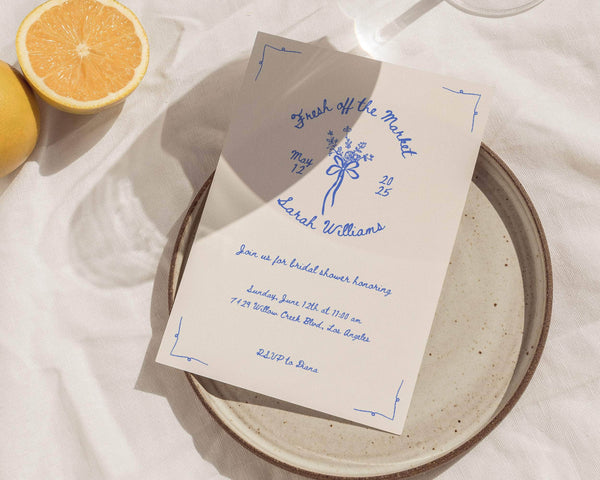 Fresh off the Market
May
12
20
25
Sarah Williams
Join us for bridal shower honoring
Sunday, June 12th at 11:00 am
7429 Willow Creek Blvd, Los Angeles
RSVP to Diana